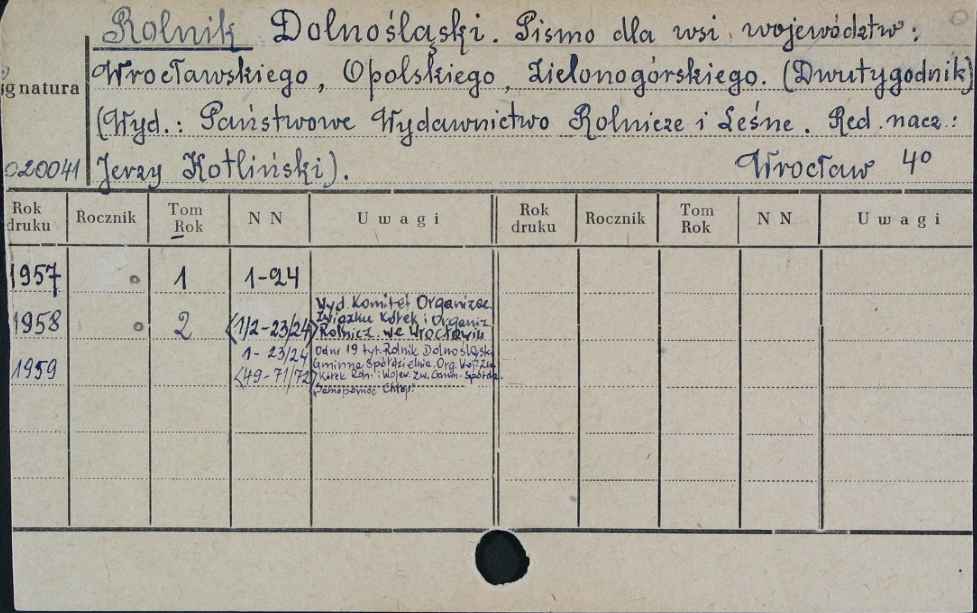 Rolnik Dolnośląski. Pismo dla wsi województw:
Wrocławskiego, Opolskiego, Zielonogórskiego. (Dwutygodnik)
ignatura
(Wyd.: Państwowe Wydawnictwo Rolnicze i Leśne. Red. nacz.:
020041 Jerzy Kotliński). Wrocław 4°
Rok druku Rocznik Tom Rok NN Uwagi Rok druku Rocznik Tom Rok NN Uwagi
1957 1 1-24
1958 2 <1/2-23/24>
Wyd. Komitet Organizac
Związku Kółek i Organiz
Rolnicz. we Wrocławiu
1959 1-23/24
<49-71/72>
Od nr 19 tyt. Rolnik Dolnośląski
Gminna Spółdzielnia. Org.
Kółek Roln. i Wojew. Zw. Gmin. Spółdz.
"Samopomoc Chłop."